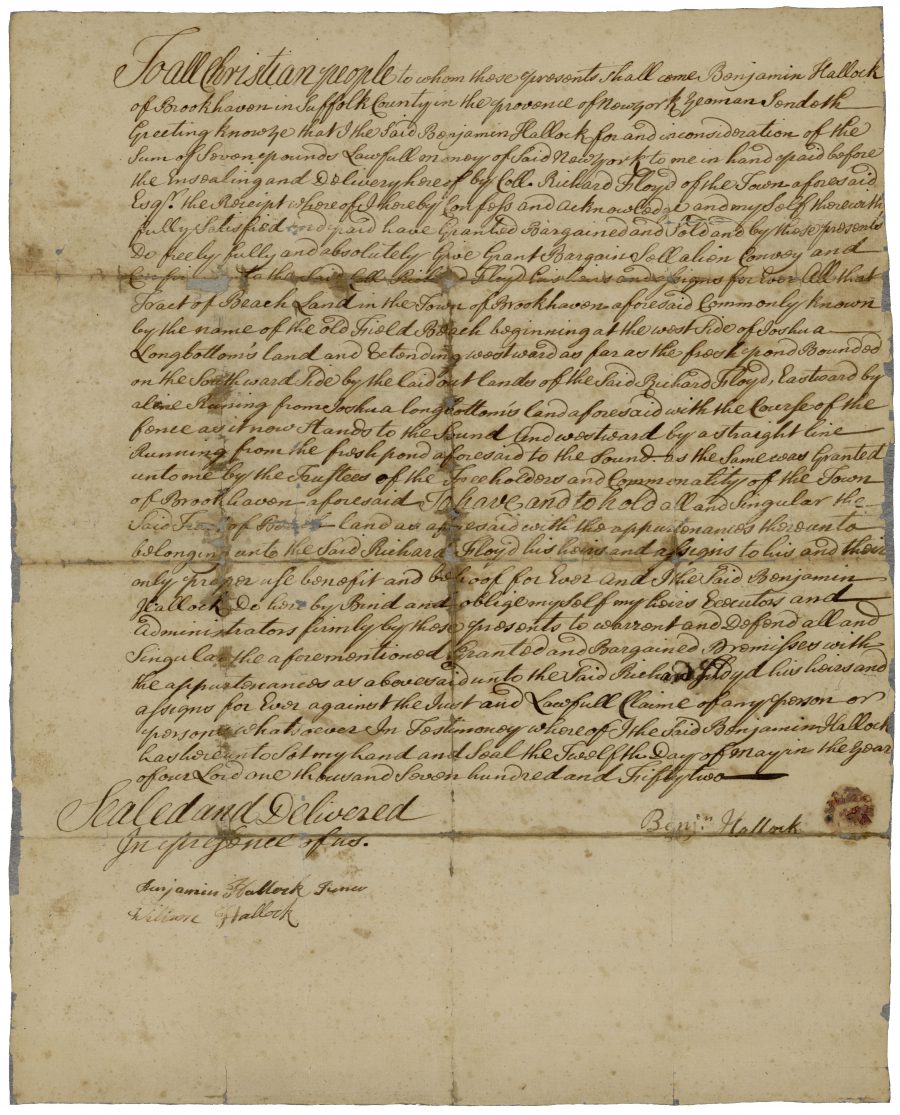 To all Christian people to whom these presents Shall come Benjamin Hallock
of Brookhaven in Suffolk County in the provence of Newyork Yeoman Sendeth
Greeting know ye that I the Said Benjamin Hallock for and in consideration of the
Sum of Seven pounds Lawfull money of Said New York to me in hand paid before
the Ensealing and Delivery hereof by Coll. Richard Floyd of the Town aforesaid
Esqr. the Receipt whereof I hereby Confess and acknowledge and my Self therewith
fully Satisfied and paid have Granted Bargained and Sold and by these presents
Do freely fully and absolutely Give Grant Bargain Sell alien Convey and
to the Said Coll Richard Floyd his heirs and assigns for Ever All that
Tract of Beach Land in the Town of Brookhaven aforesaid Commonly known
by the name of the old Field Beach beginning at the west Side of Joshua
Longbottom's land and Extending westward as far as the fresh pond Bounded
on the Southward Side by the laid out lands of the Said Richard Floyd, Eastward by
a line Runing from Joshua longbottom's land aforesaid with the Course of the
fence as it now Stands to the Sound and westward by a straight line
Running from the fresh pond aforesaid to the Sound. as the Same was Granted
unto me by the Trustees of the Freeholders and Commonality of the Town
of Brookhaven aforesaid To have and to hold all and Singular the
Said of land as aforesaid with the appurtenances thereunto
belonging unto the Said Richard Floyd his heirs and assigns to his and their
only proper use benefit and behoof for Ever and I the Said Benjamin
Hallock Do here by Bind and oblige my Self my heirs Executors and
administrators firmly by these presents to warrent and Defend all and
Singular the aforementioned Granted and Bargained Premisses with
the appurtenances as above said unto the Said Richard Floyd his heirs and
assigns for Ever against the Just and Lawfull Claime of any person or
persons whatsoever In Testimoney whereof I the Said Benjamin Hallock
has hereunto Set my hand and Seal the Twelfth Day of may in the Year
of our Lord one thousand Seven hundred and Fifty two
Sealed and Delivered
In presence of us.
Benjn Hallock
Benjamin Hallock Juner
Hallock